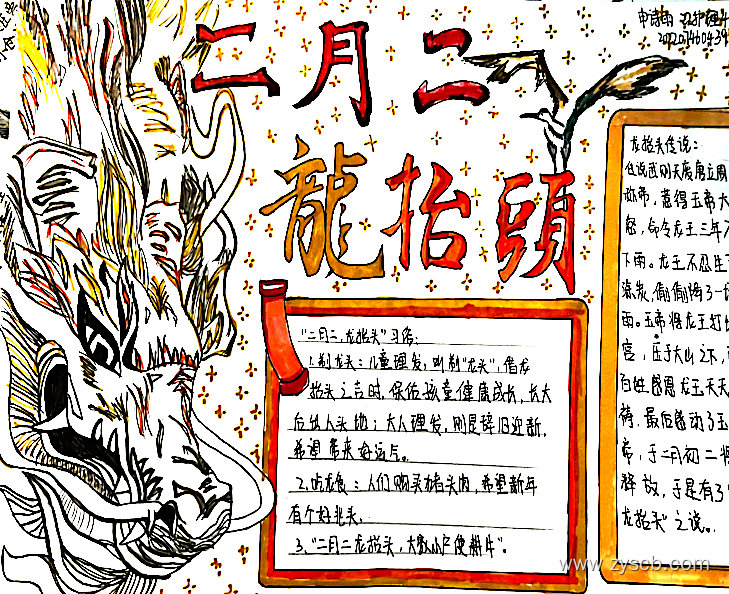 二月二
龍抬頭
202207460439
"二月二,龙抬头"习俗:
1.剃龙头:儿童理发,叫剃"龙头",借龙
抬头之吉时,保佑孩童健康成长,长大
后出人头地;大人理发,则是辞旧迎新,
希望带来好运气。
2.吃龙食:人们购买猪头肉,希望新年
有个好兆头.
3."二月二龙抬头,大
龙抬头传说:
武则天废唐立周
称帝,惹得玉帝大
怒,命令龙王三年不
下雨。龙王不忍生
涂炭,偷偷降了一场
雨。玉帝将龙王打
宫,压于大山之下,
百姓感恩龙王天天
祷,最后感动了玉
帝,于二月初二将
释放,于是有了"
龙抬头"之说。
www.zyscb.com